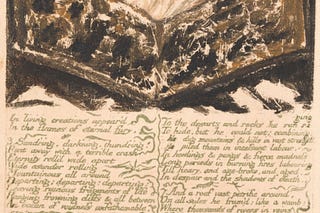 In living creations appear'd
In the flames of eternal fury.
3. Sund'ring, dark'ning, thund'ring!
Rent away with a terrible crash
Eternity roll'd wide apart
Wide asunder rolling
Mountainous all around
Departing; departing; departing:
Leaving ruinous fragments of life
Hanging frowning cliffs & all between
An ocean of voidness unfathomable
To the desarts and rocks he
To hide, but he could not; combining
He dug mountains & hills in vast strength,
He piled them in incessant labour,
In howlings & pangs & fierce madness
Long periods in burning fires labouring
Till hoary, and age-broke, and aged,
In despair and the shadows of death.
And a roof vast petrific around,
On all sides He fram'd: like a womb;
Where thousands of rivers in veins